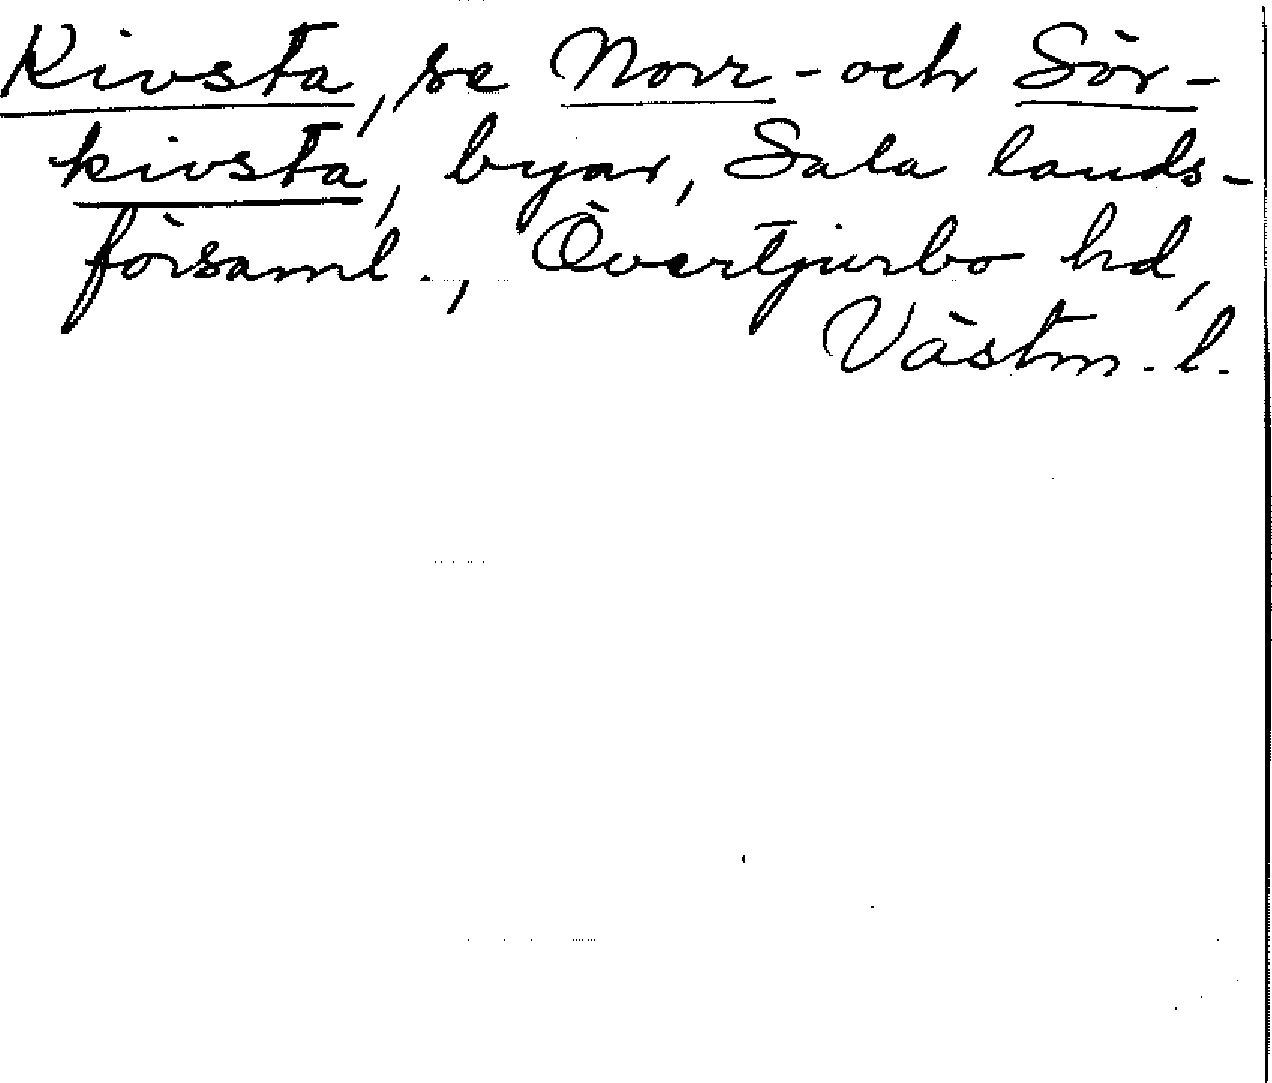 Kivsta, se Norr- och Sör-
kivsta, byar, Sala lands-
församl., Övertjurbo hd,
Västm. l.